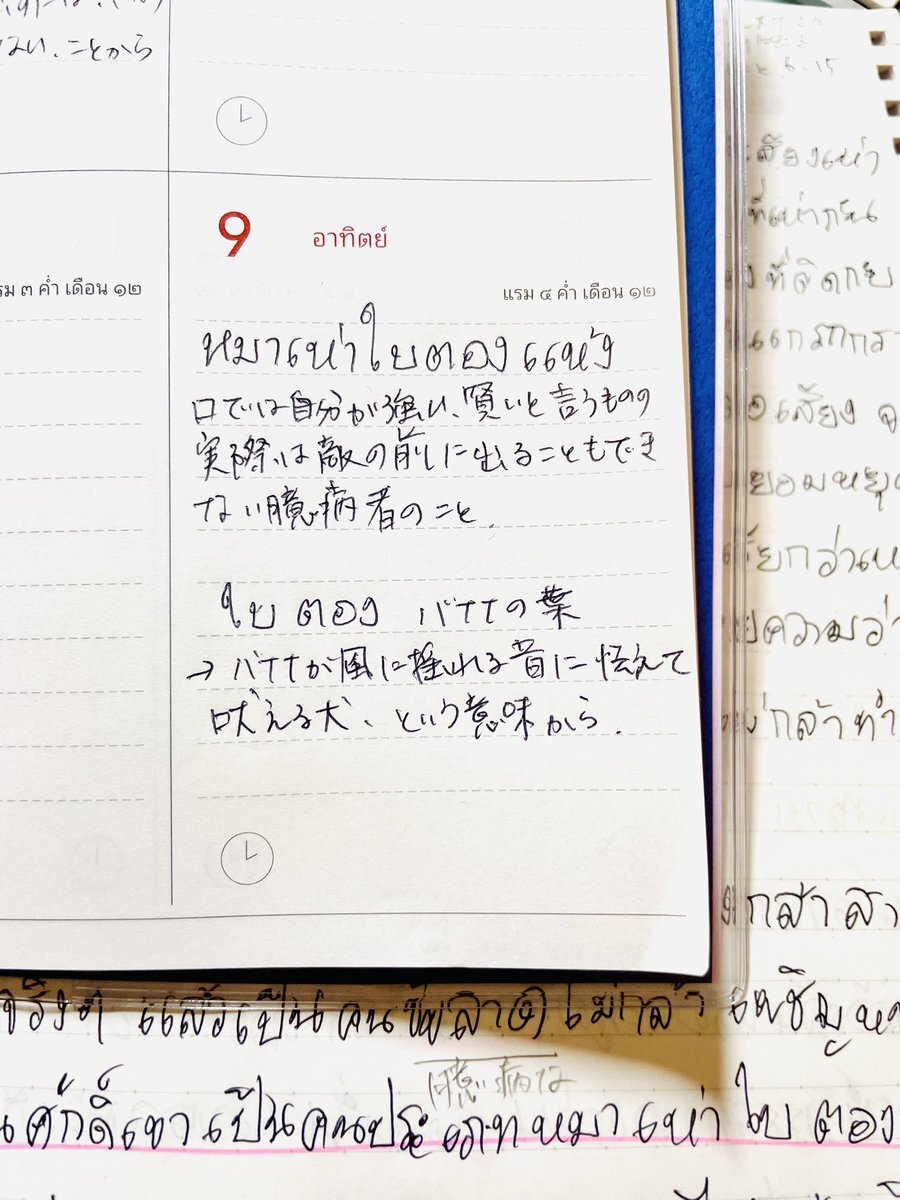 ない、ことから
9 อาทิตย์
รม ๓ ค่ำ เดือน ๑๒
แรม ๔ ค่ำ เดือน ๑๒
หมาเห่าใบตองแห้ง
口では自分が強い、賢いと言うものの
実際は敵の前に出ることもでき
ない臆病者のこと.
ใบตอง バナナの葉
→ バナナが風に揺れる音に怯えて
吠える犬、という意味から.
6.15
เสียงเห่า
ที่เห่ากัน
ที่ติดกับ
แกรกกรา
เสียง
ยอมหยุ
กว่าเห
ความว่า
กล้าทำ
จริงๆ แล้วเป็นคนขี้ขลาด ไม่กล้า เผชิญห
臆病な
ศักดิ์เขาเป็นคนประเภทหมาเห่าใบตอง